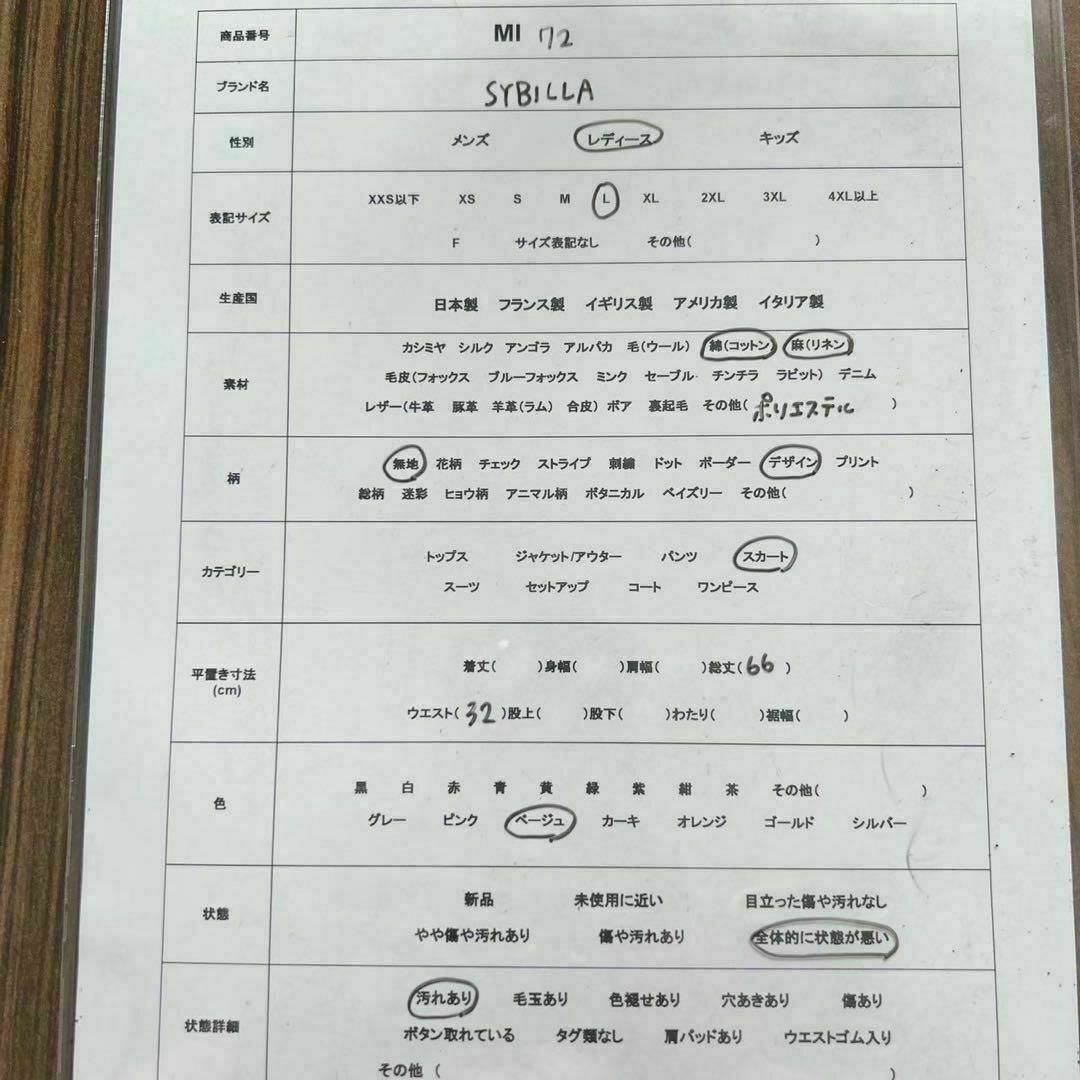 商品番号 MI 72
ブランド名 SYBILLA
性別 メンズ レディース キッズ
XXS以下 XS S M L XL 2XL 3XL 4XL以上
表記サイズ
F サイズ表記なし その他( )
生産国 日本製 フランス製 イギリス製 アメリカ製 イタリア製
カシミヤ シルク アンゴラ アルパカ 毛(ウール) 綿(コットン) 麻(リネン)
素材 毛皮(フォックス ブルーフォックス ミンク セーブル チンチラ ラビット) デニム
レザー(牛革 豚革 羊革(ラム) 合皮) ボア 裏起毛 その他(ポリエステル )
無地 花柄 チェック ストライプ 刺繍 ドット ボーダー デザイン プリント
柄
総柄 迷彩 ヒョウ柄 アニマル柄 ボタニカル ペイズリー その他( )
トップス ジャケット/アウター パンツ スカート
カテゴリー
スーツ セットアップ コート ワンピース
着丈( )身幅( )肩幅( )総丈(66 )
平置き寸法
(cm)
ウエスト( 32 )股上( )股下( )わたり( )裾幅( )
黒 白 赤 青 黄 緑 紫 紺 茶 その他( )
色
グレー ピンク ベージュ カーキ オレンジ ゴールド シルバー
新品 未使用に近い 目立った傷や汚れなし
状態
やや傷や汚れあり 傷や汚れあり 全体的に状態が悪い
汚れあり 毛玉あり 色褪せあり 穴あきあり 傷あり
状態詳細
ボタン取れている タグ類なし 肩パッドあり ウエストゴム入り
その他 ( )